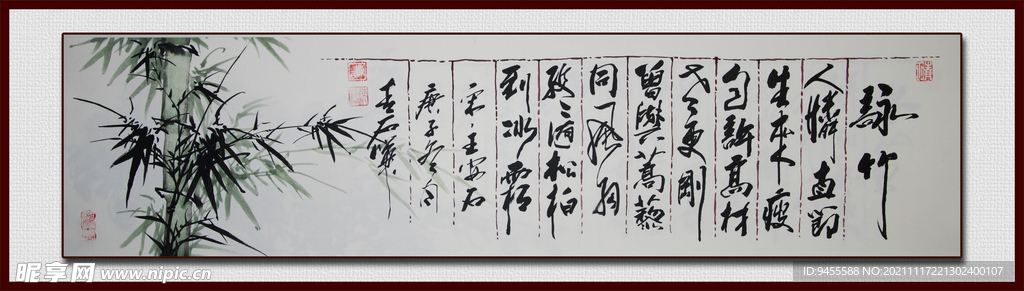 詠竹
人憐直節
生來瘦
自許高材
老更剛
曾與蒿藜
同
終隨松柏
到冰霜
宋·王安石
庚子冬月
昵享网 www.nipic.cn
ID:9455588 NO:20211117221302400107